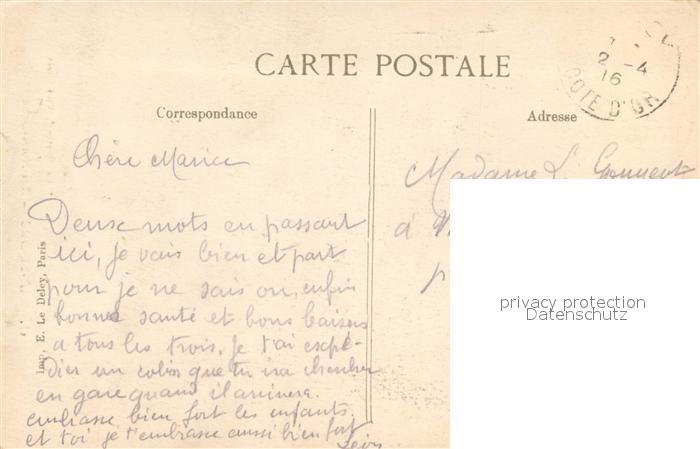 CARTE POSTALE
Correspondance
Adresse
2 -4
16
COTE D'OR
Chère Marie
Deux mots en passant
ici, je vais bien et part
pour je ne sais ou, enfin
bonne santé et bons baisers
a tous les trois. Je t'ai expé-
dier un colin que tu ira chercher
en gare quand il arrivera.
embrasse bien fort les enfants.
et toi je t'embrasse aussi bien fort
Madame L.
à
Imp. E. Le Deley, Paris
privacy protection
Datenschutz